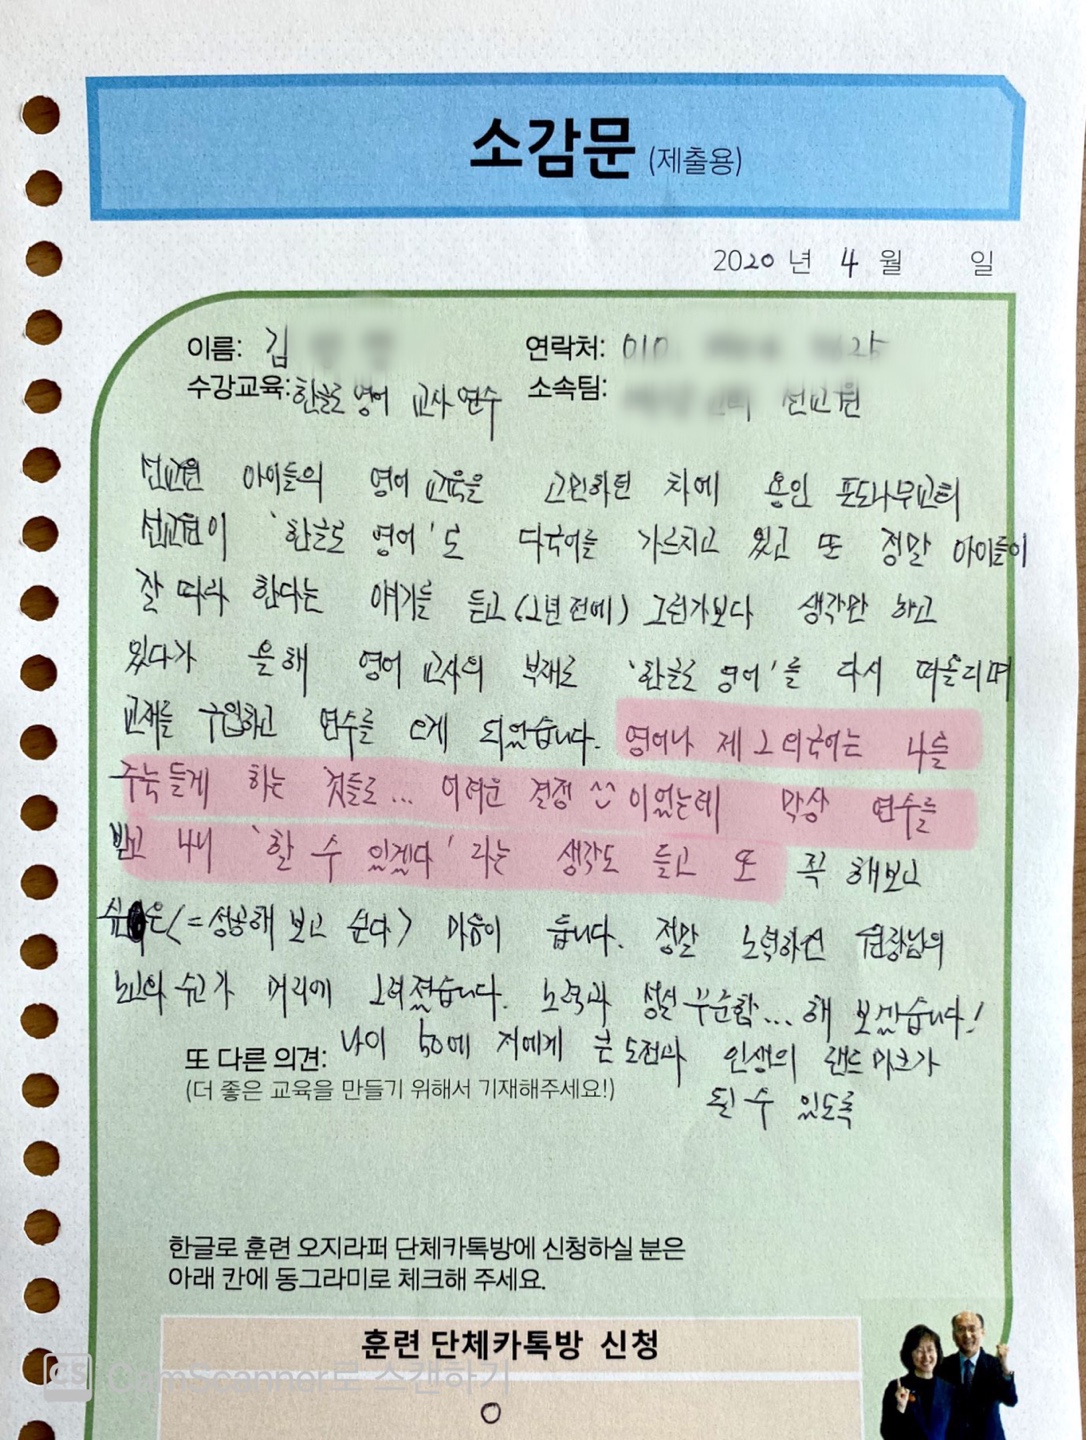 소감문 (제출용)
2020 년 4 월 일
이름: 김 연락처: 010. 25
수강교육: 한글로 영어 교사 연수 소속팀: 선교원
선교원 아이들의 영어 교육을 고민하던 차에 용인 포도나무교회
선교원이 '한글로 영어'로 다국어를 가르치고 있고 또 정말 아이들이
잘 따라 한다는 얘기를 듣고 (2년 전에) 그런가보다 생각만 하고
있다가 올해 영어 교사의 부재로 '한글로 영어'를 다시 떠올리며
교재를 구입하고 연수를 오게 되었습니다. 영어나 제 2 외국어는 나를
주눅 들게 하는 것들로... 어려운 결정 ^^ 이었는데 막상 연수를
받고 나니 '할 수 있겠다' 라는 생각도 들고 또 꼭 해보고
싶은 (= 성공해 보고 싶다) 마음이 듭니다. 정말 노력하신 원장님의
노고와 수고가 머리에 그려졌습니다. 노력과 성실 꾸준함... 해 보겠습니다!
또 다른 의견: 나이 50에 저에게 큰 도전과 인생의 랜드마크가
(더 좋은 교육을 만들기 위해서 기재해주세요!) 될 수 있도록
한글로 훈련 오지라퍼 단체카톡방에 신청하실 분은
아래 칸에 동그라미로 체크해 주세요.
훈련 단체카톡방 신청
CS CamScanner로 스캔하기
O